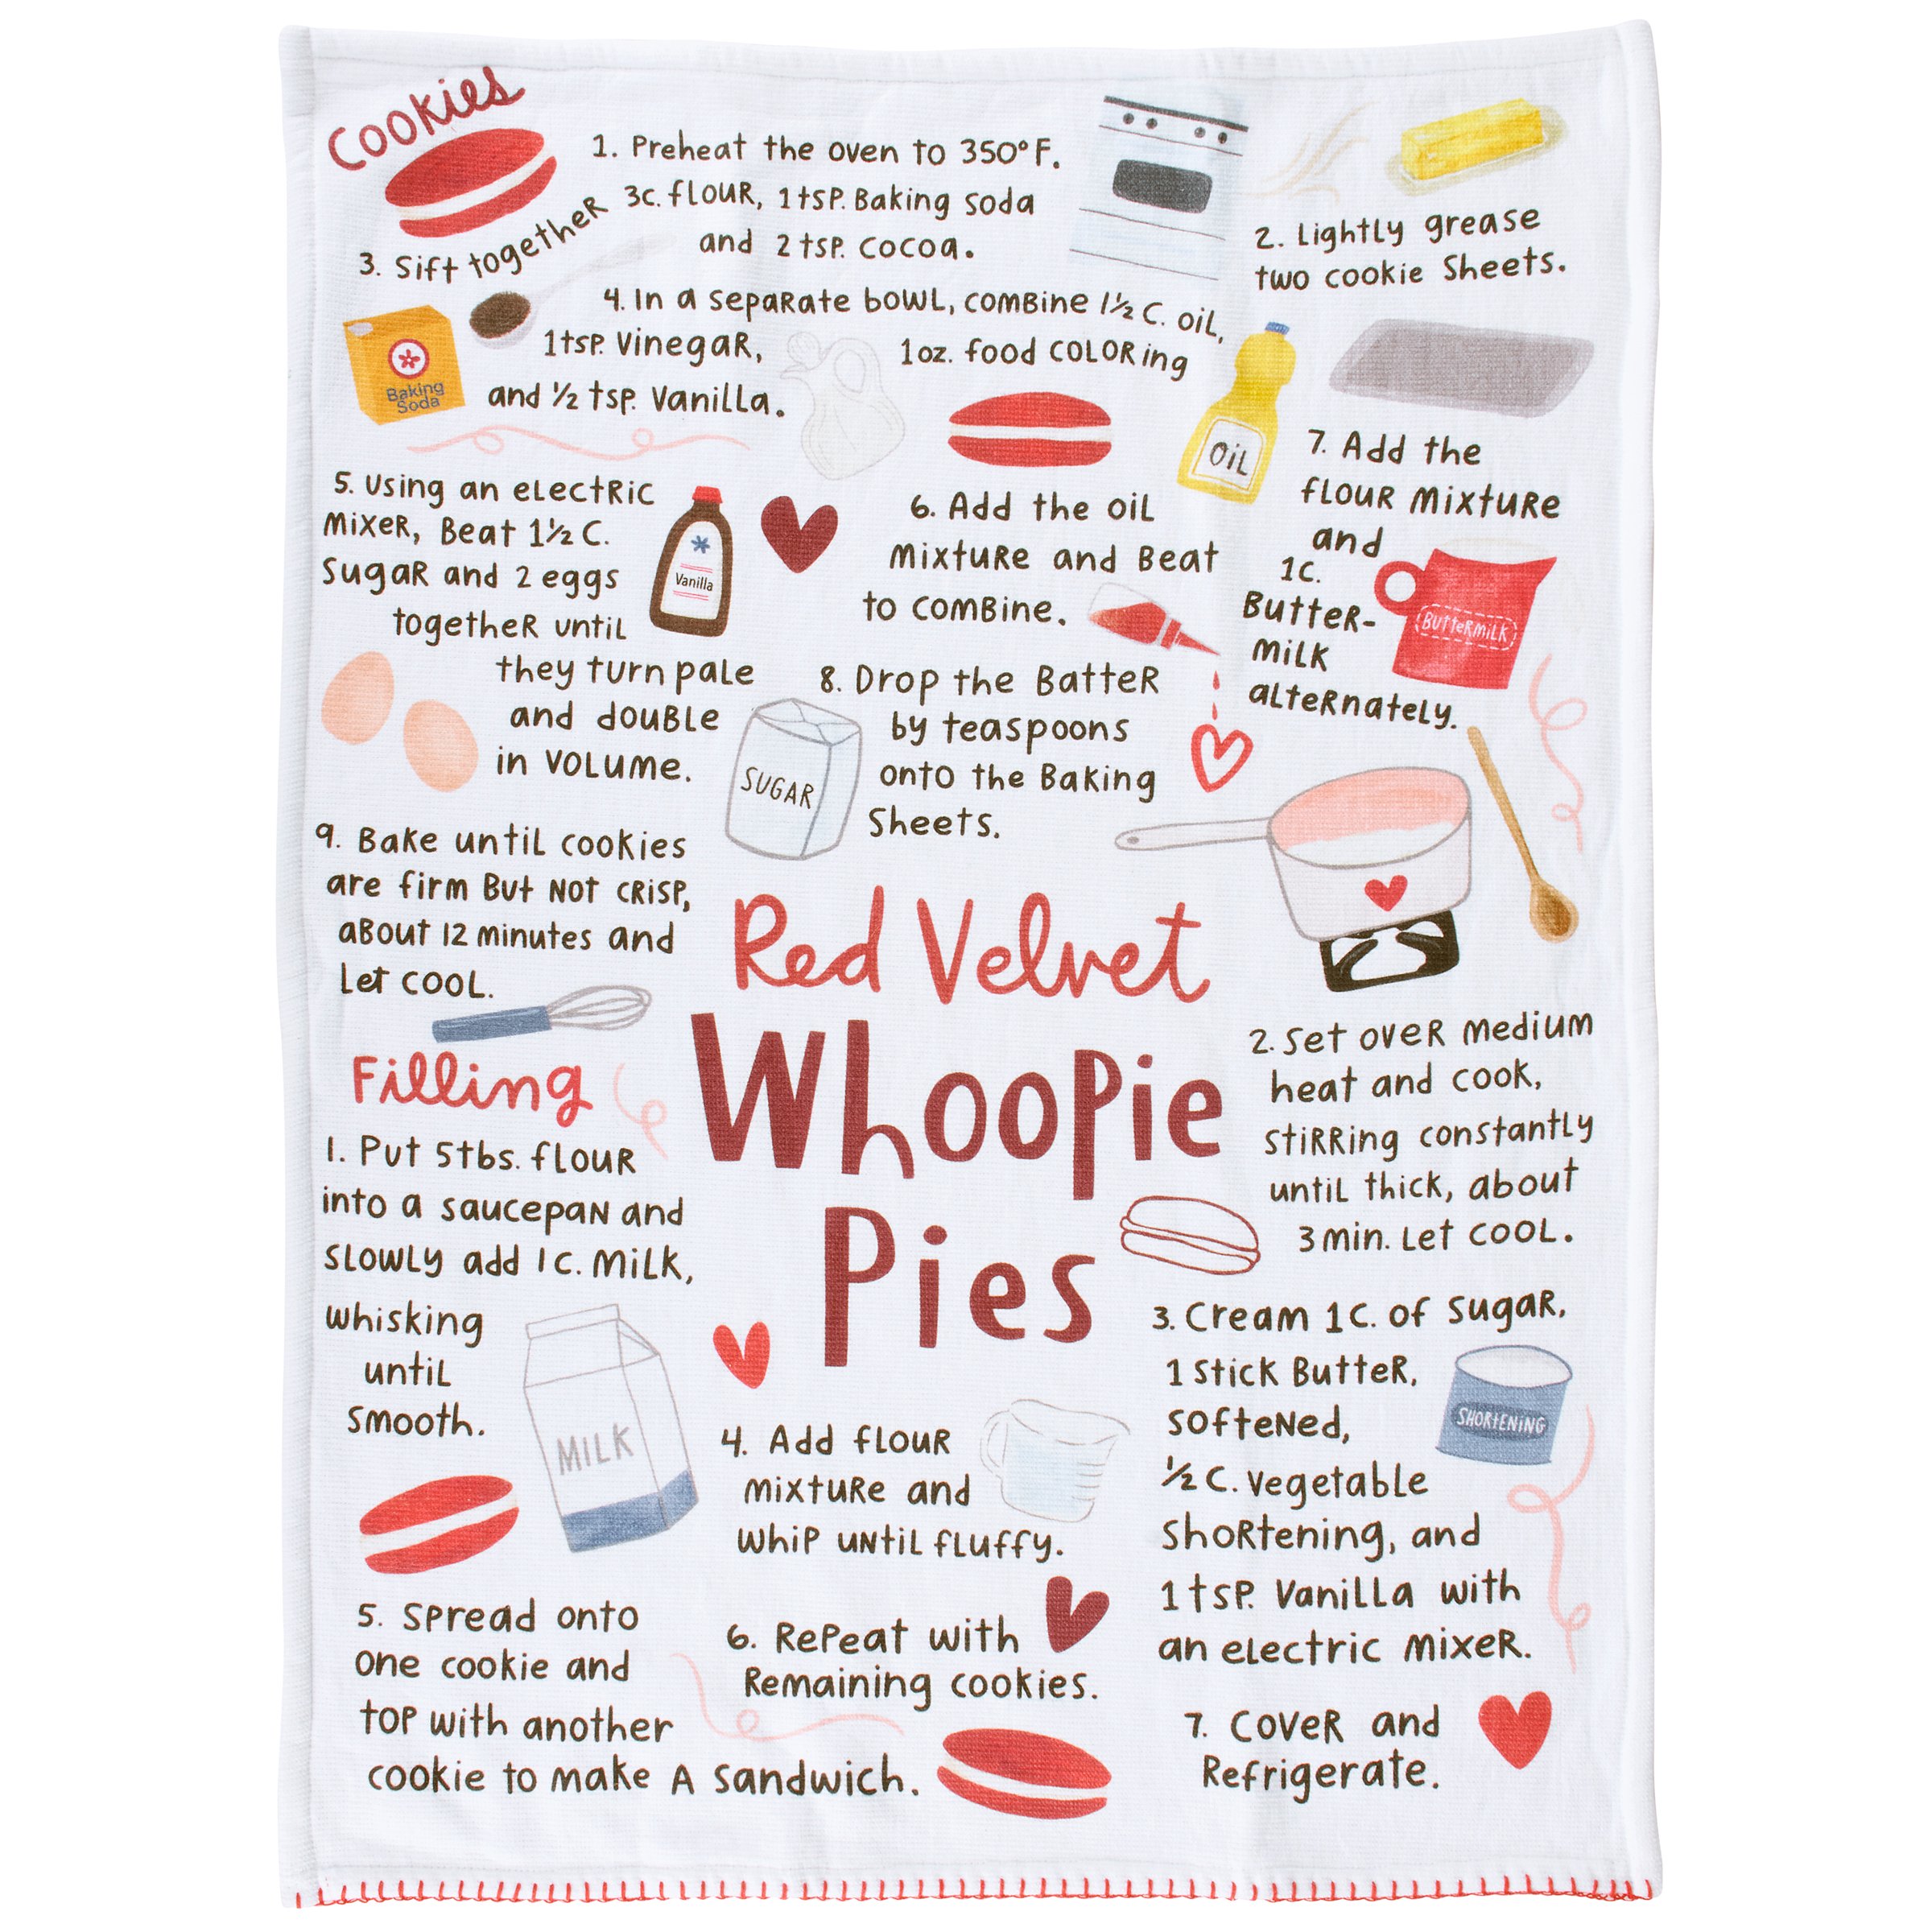 Cookies
1. Preheat the oven to 350° F.
2. Lightly grease
two cookie sheets.
3. Sift together 3c. flour, 1 tsp. Baking soda
and 2 tsp. cocoa.
4. In a separate bowl, combine 1½ c. oil,
1 tsp. vinegar, 1 oz. food coloring
and ½ tsp. vanilla.
Baking
Soda
OIL
5. Using an electric
mixer, Beat 1½ c.
sugar and 2 eggs
together until
they turn pale
and double
in volume.
Vanilla
6. Add the oil
mixture and Beat
to combine.
7. Add the
flour mixture
and
1c.
Butter-
milk
alternately.
BUTTERMILK
8. Drop the Batter
by teaspoons
onto the Baking
Sheets.
SUGAR
9. Bake until cookies
are firm But not crisp,
about 12 minutes and
Let cool.
Red Velvet
Whoopie
Pies
Filling
1. Put 5 tbs. flour
into a saucepan and
slowly add 1 c. milk,
whisking
until
smooth.
MILK
2. Set over medium
heat and cook,
stirring constantly
until thick, about
3 min. Let cool.
3. Cream 1c. of sugar,
1 stick Butter,
softened,
½ c. vegetable
shortening, and
1 tsp. Vanilla with
an electric mixer.
SHORTENING
4. Add flour
mixture and
whip until fluffy.
5. Spread onto
one cookie and
top with another
cookie to make A sandwich.
6. Repeat with
Remaining cookies.
7. Cover and
Refrigerate.